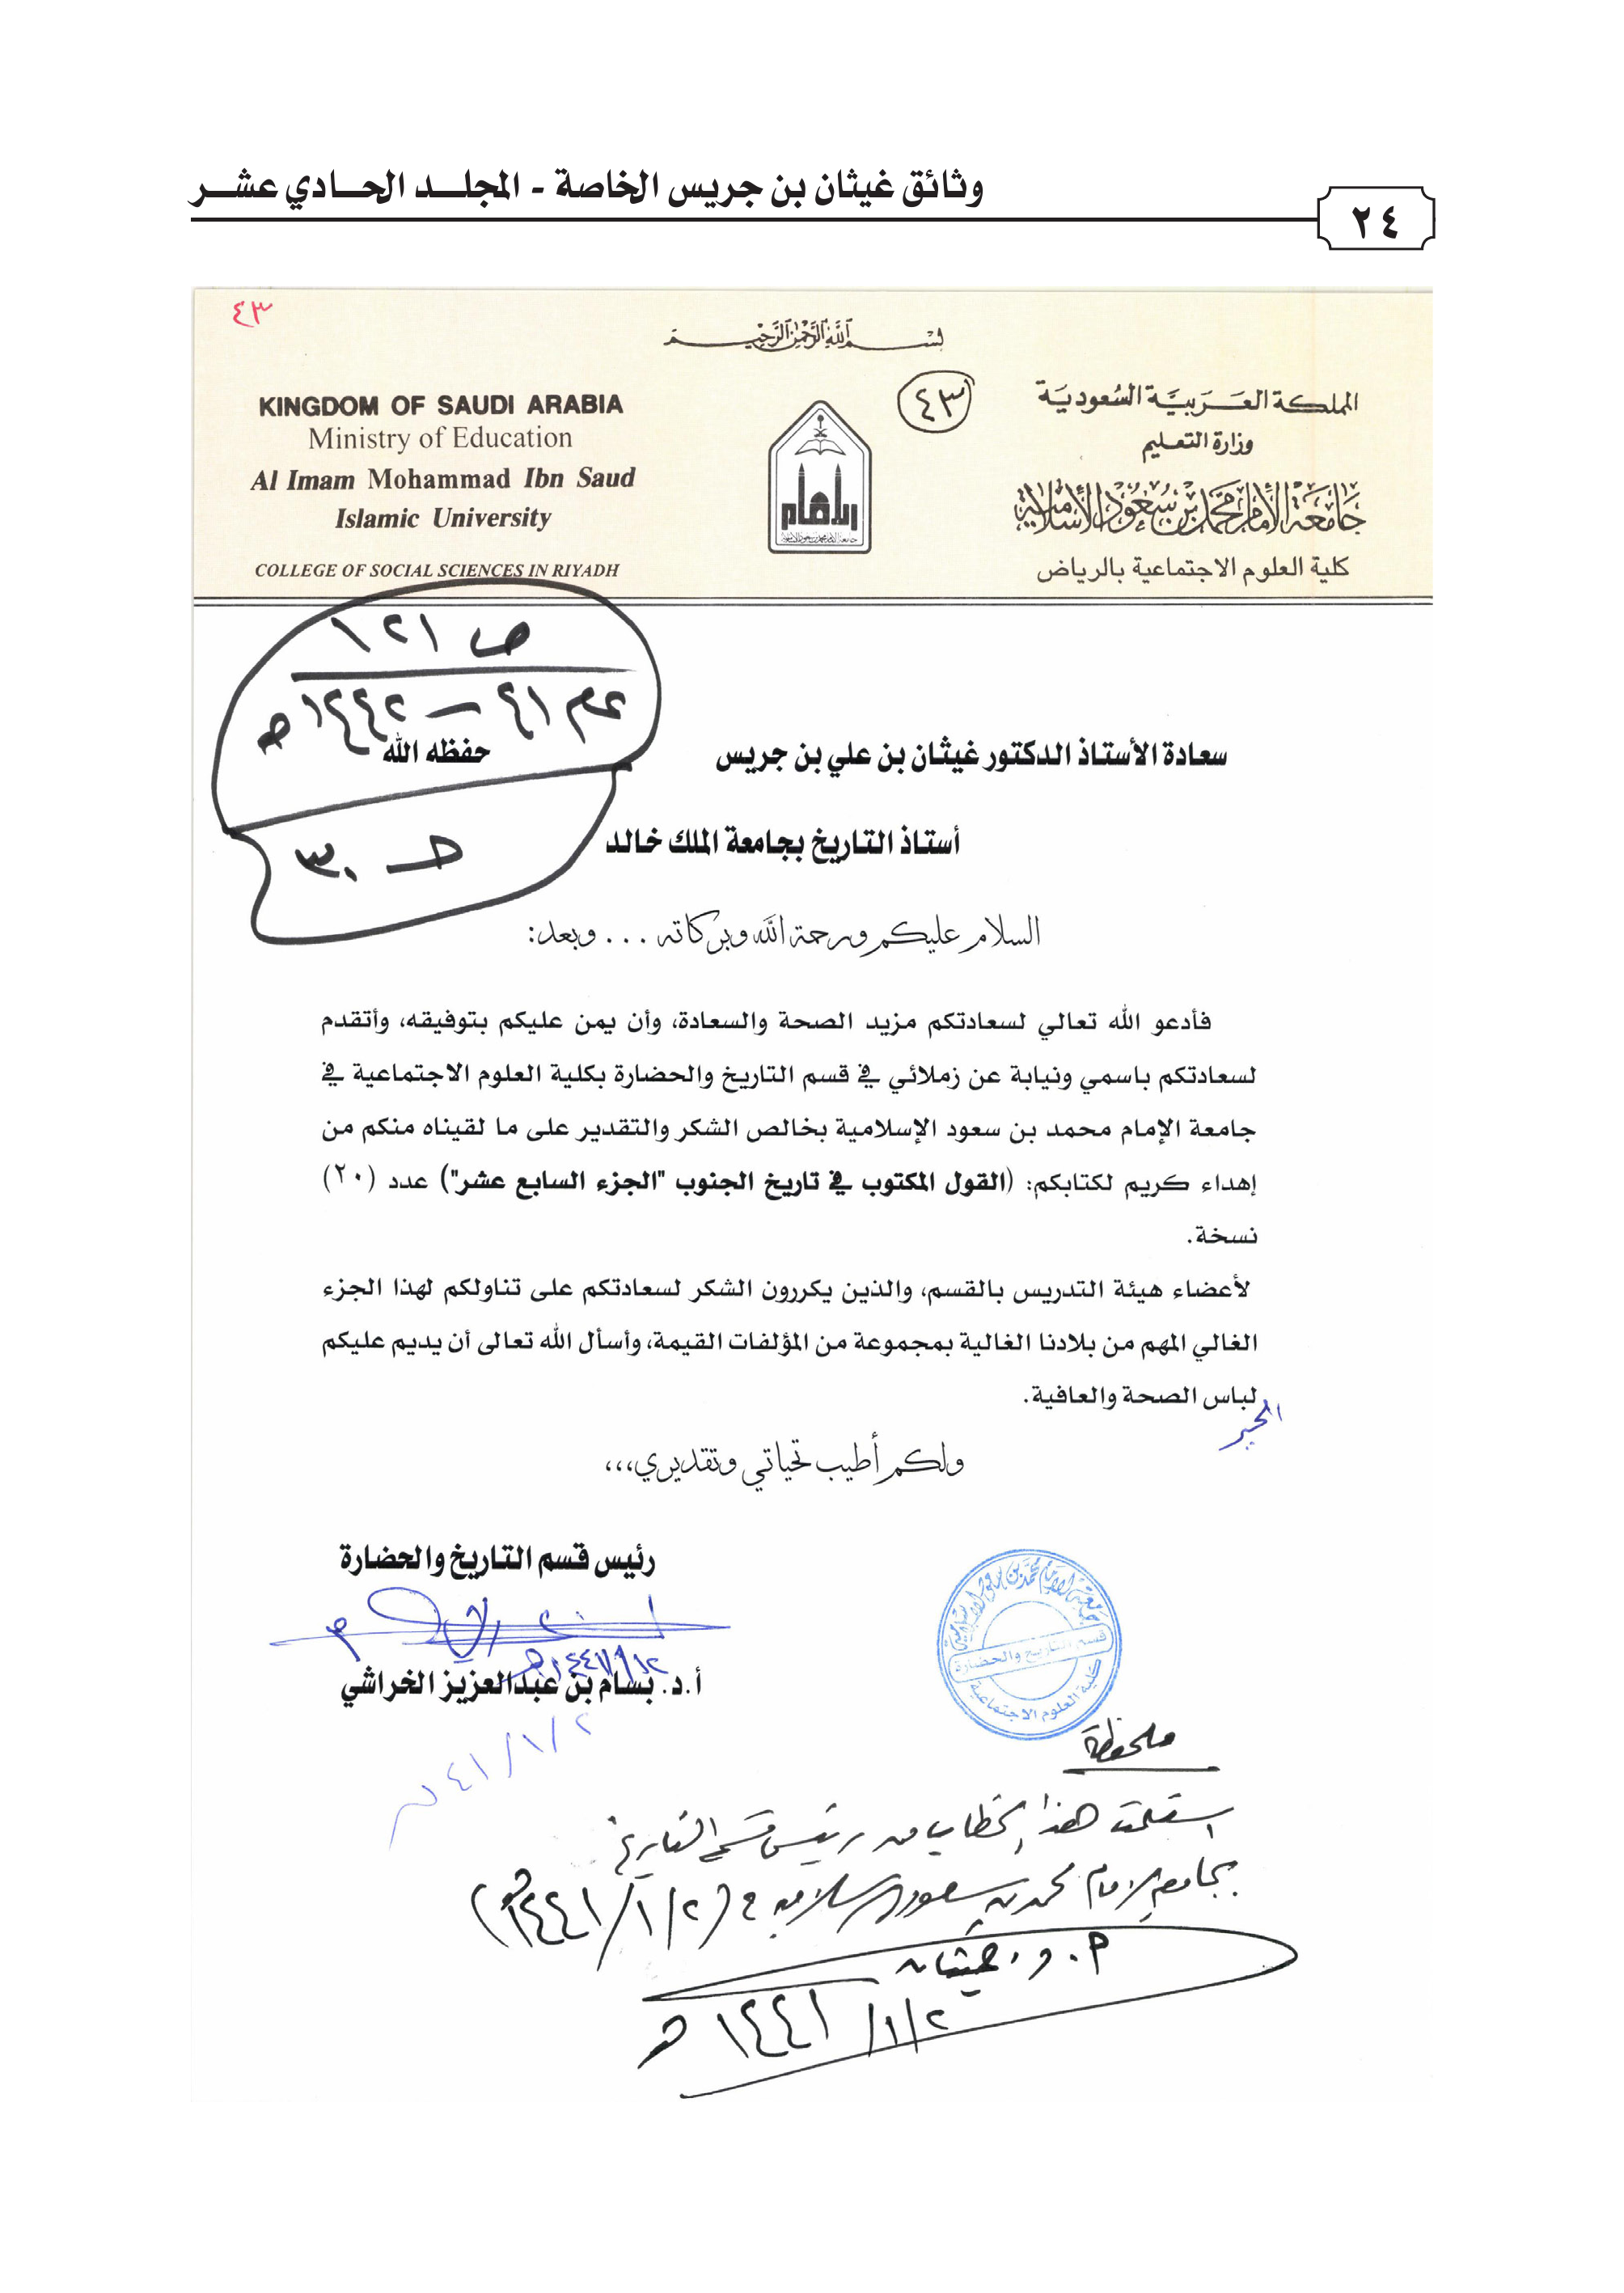 وثائق غيثان بن جريس الخاصة - المجلد الحادي عشر
٢٤
٤٣
بسم الله الرحمن الرحيم
٤٣
المملكة العربية السعودية
وزارة التعليم
جامعة الإمام محمد بن سعود الإسلامية
كلية العلوم الاجتماعية بالرياض
KINGDOM OF SAUDI ARABIA
Ministry of Education
Al Imam Mohammad Ibn Saud
Islamic University
COLLEGE OF SOCIAL SCIENCES IN RIYADH
الإمام
ص ١٢١
عام ٤١ – ١٤٤٢ هـ
ح ٣٠
سعادة الأستاذ الدكتور غيثان بن علي بن جريس حفظه الله
أستاذ التاريخ بجامعة الملك خالد
السلام عليكم ورحمة الله وبركاته . . . وبعد:
فأدعو الله تعالي لسعادتكم مزيد الصحة والسعادة، وأن يمن عليكم بتوفيقه، وأتقدم
لسعادتكم باسمي ونيابة عن زملائي في قسم التاريخ والحضارة بكلية العلوم الاجتماعية في
جامعة الإمام محمد بن سعود الإسلامية بخالص الشكر والتقدير على ما لقيناه منكم من
إهداء كريم لكتابكم: (القول المكتوب في تاريخ الجنوب "الجزء السابع عشر") عدد (٢٠)
نسخة.
لأعضاء هيئة التدريس بالقسم، والذين يكررون الشكر لسعادتكم على تناولكم لهذا الجزء
الغالي المهم من بلادنا الغالية بمجموعة من المؤلفات القيمة، وأسأل الله تعالى أن يديم عليكم
لباس الصحة والعافية.
ولكم أطيب تحياتي وتقديري،،،
رئيس قسم التاريخ والحضارة
أ.د. بسام بن عبدالعزيز الخراشي
٤١/١/٢
جامعة الإمام محمد بن سعود الإسلامية
قسم التاريخ والحضارة
كلية العلوم الاجتماعية
ملحوظة
استلمت هذا الخطاب من رئيس قسم التاريخ
بجامعة الامام محمد بن سعود الاسلامية في (١٤٤١/١/٢هـ)
أ. د. غيثان
١٤٤١/١/٢ هـ